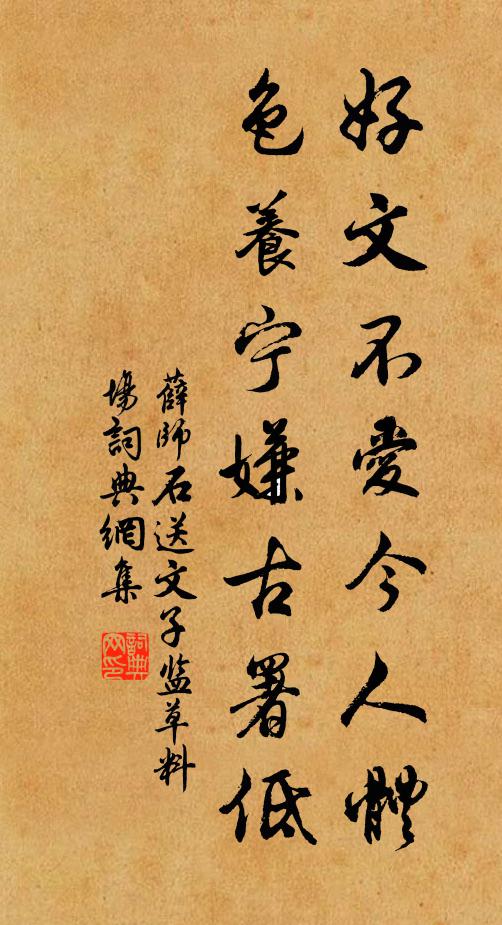 好文不愛今人體
色養宁嫌古署低
薛師石送文子监草料
場詞典網集
詞典网印